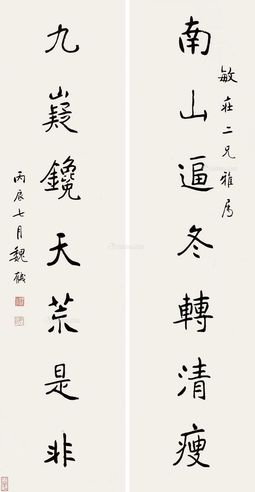 敏莊二兄雅属
南山逼冬轉清瘦
九嶷鑱天荒是非
丙辰七月魏戫